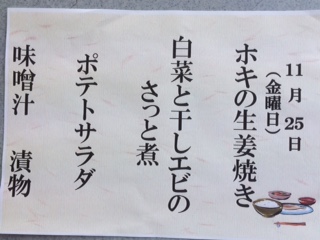 11月25日
(金曜日)
ホキの生姜焼き
白菜と干しエビの
さっと煮
ポテトサラダ
味噌汁 漬物